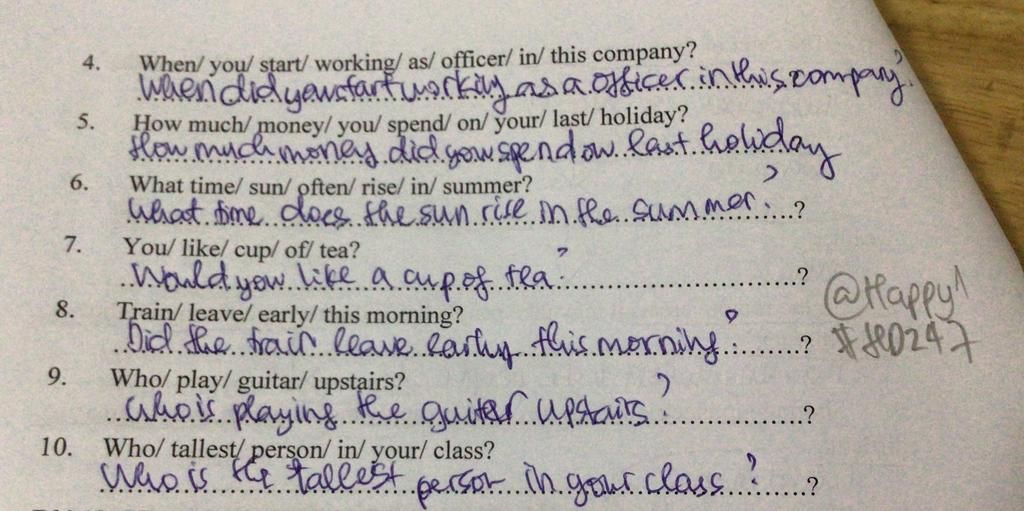 4. When/ you/ start/ working/ as/ officer/ in/ this company?
When did you start working as a officer in this company?
5. How much/ money/ you/ spend/ on/ your/ last/ holiday?
How much money did you spend on last holiday
6. What time/ sun/ often/ rise/ in/ summer?
What time does the sun rise in the summer? ?
7. You/ like/ cup/ of/ tea?
Would you like a cup of tea? ?
8. Train/ leave/ early/ this morning?
Did the train leave early this morning? ?
9. Who/ play/ guitar/ upstairs?
Who is playing the guiter upstairs? ?
10. Who/ tallest/ person/ in/ your/ class?
Who is the tallest person in your class? ?
@Happy1
#HD247